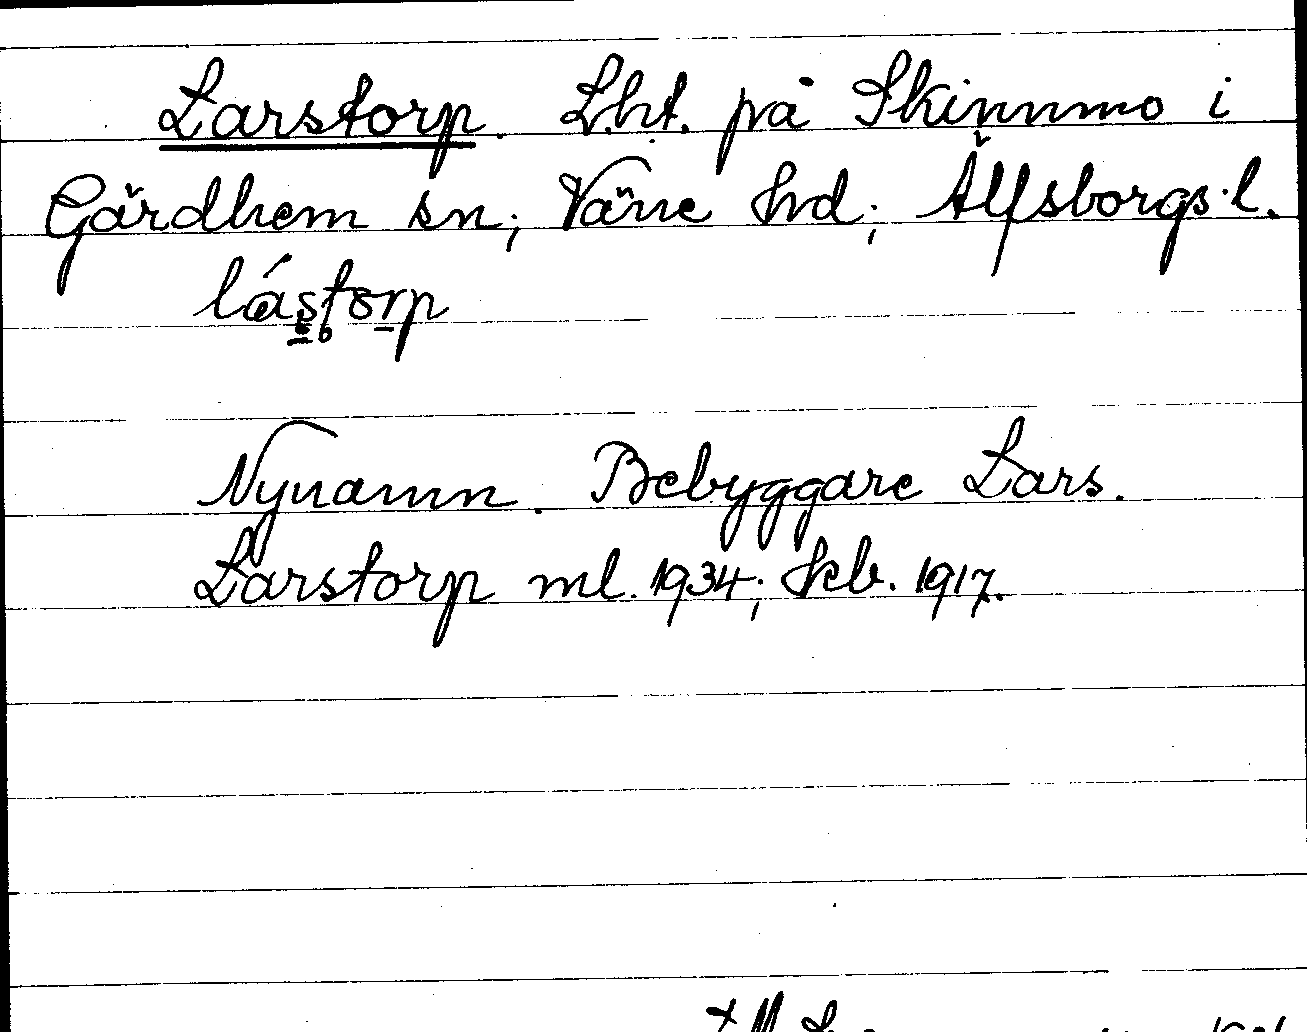 Larstorp. Lht. på Skinnmo i
Gärdhem sn; Väne hd; Älfsborgs l.
lástorp
Nynamn. Bebyggare Lars.
Larstorp ml. 1934; kb. 1917.